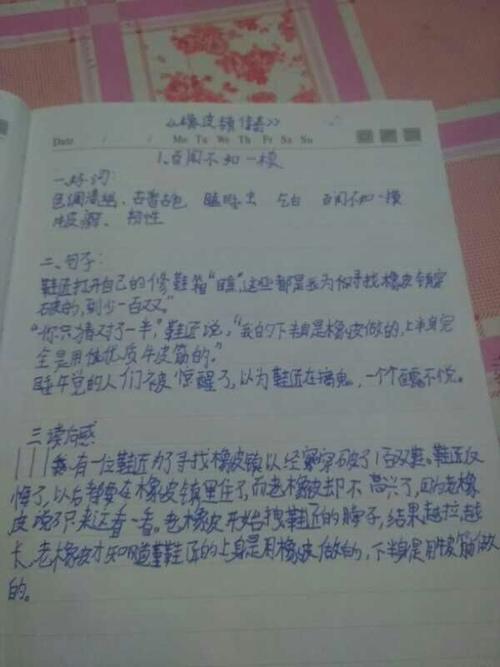 《橡皮镇传奇》
Date / / Mo Tu We Th Fr Sa Su
1、百闻不如一模
一、好词:
色调清幽、古香古色 瞌睡虫 乞白 百闻不如一摸
牛皮筋、韧性
二、句子:
鞋匠打开自己的修鞋箱"瞧,这些都是我为你寻找橡皮镇穿
破的,到少一百双。"
"你只猜对了一半,"鞋匠说,"我的下半身是橡皮做的,上半身完
全是用优质牛皮筋的。"
睡午觉的人们被惊醒了,以为鞋匠在搞鬼,一个个面露不悦。
三、读后感
有一位鞋匠为了寻找橡皮镇以经穿破了1百双鞋。鞋匠反
悔了,以后都要在橡皮镇里住了,而老橡皮却不高兴了,因为老橡
皮说了只来这看一看。老橡皮开始拽鞋匠的脖子,结果越拉越
长,老橡皮才知道鞋匠的上身是用橡皮做的,下半身是用牛皮筋做
的。